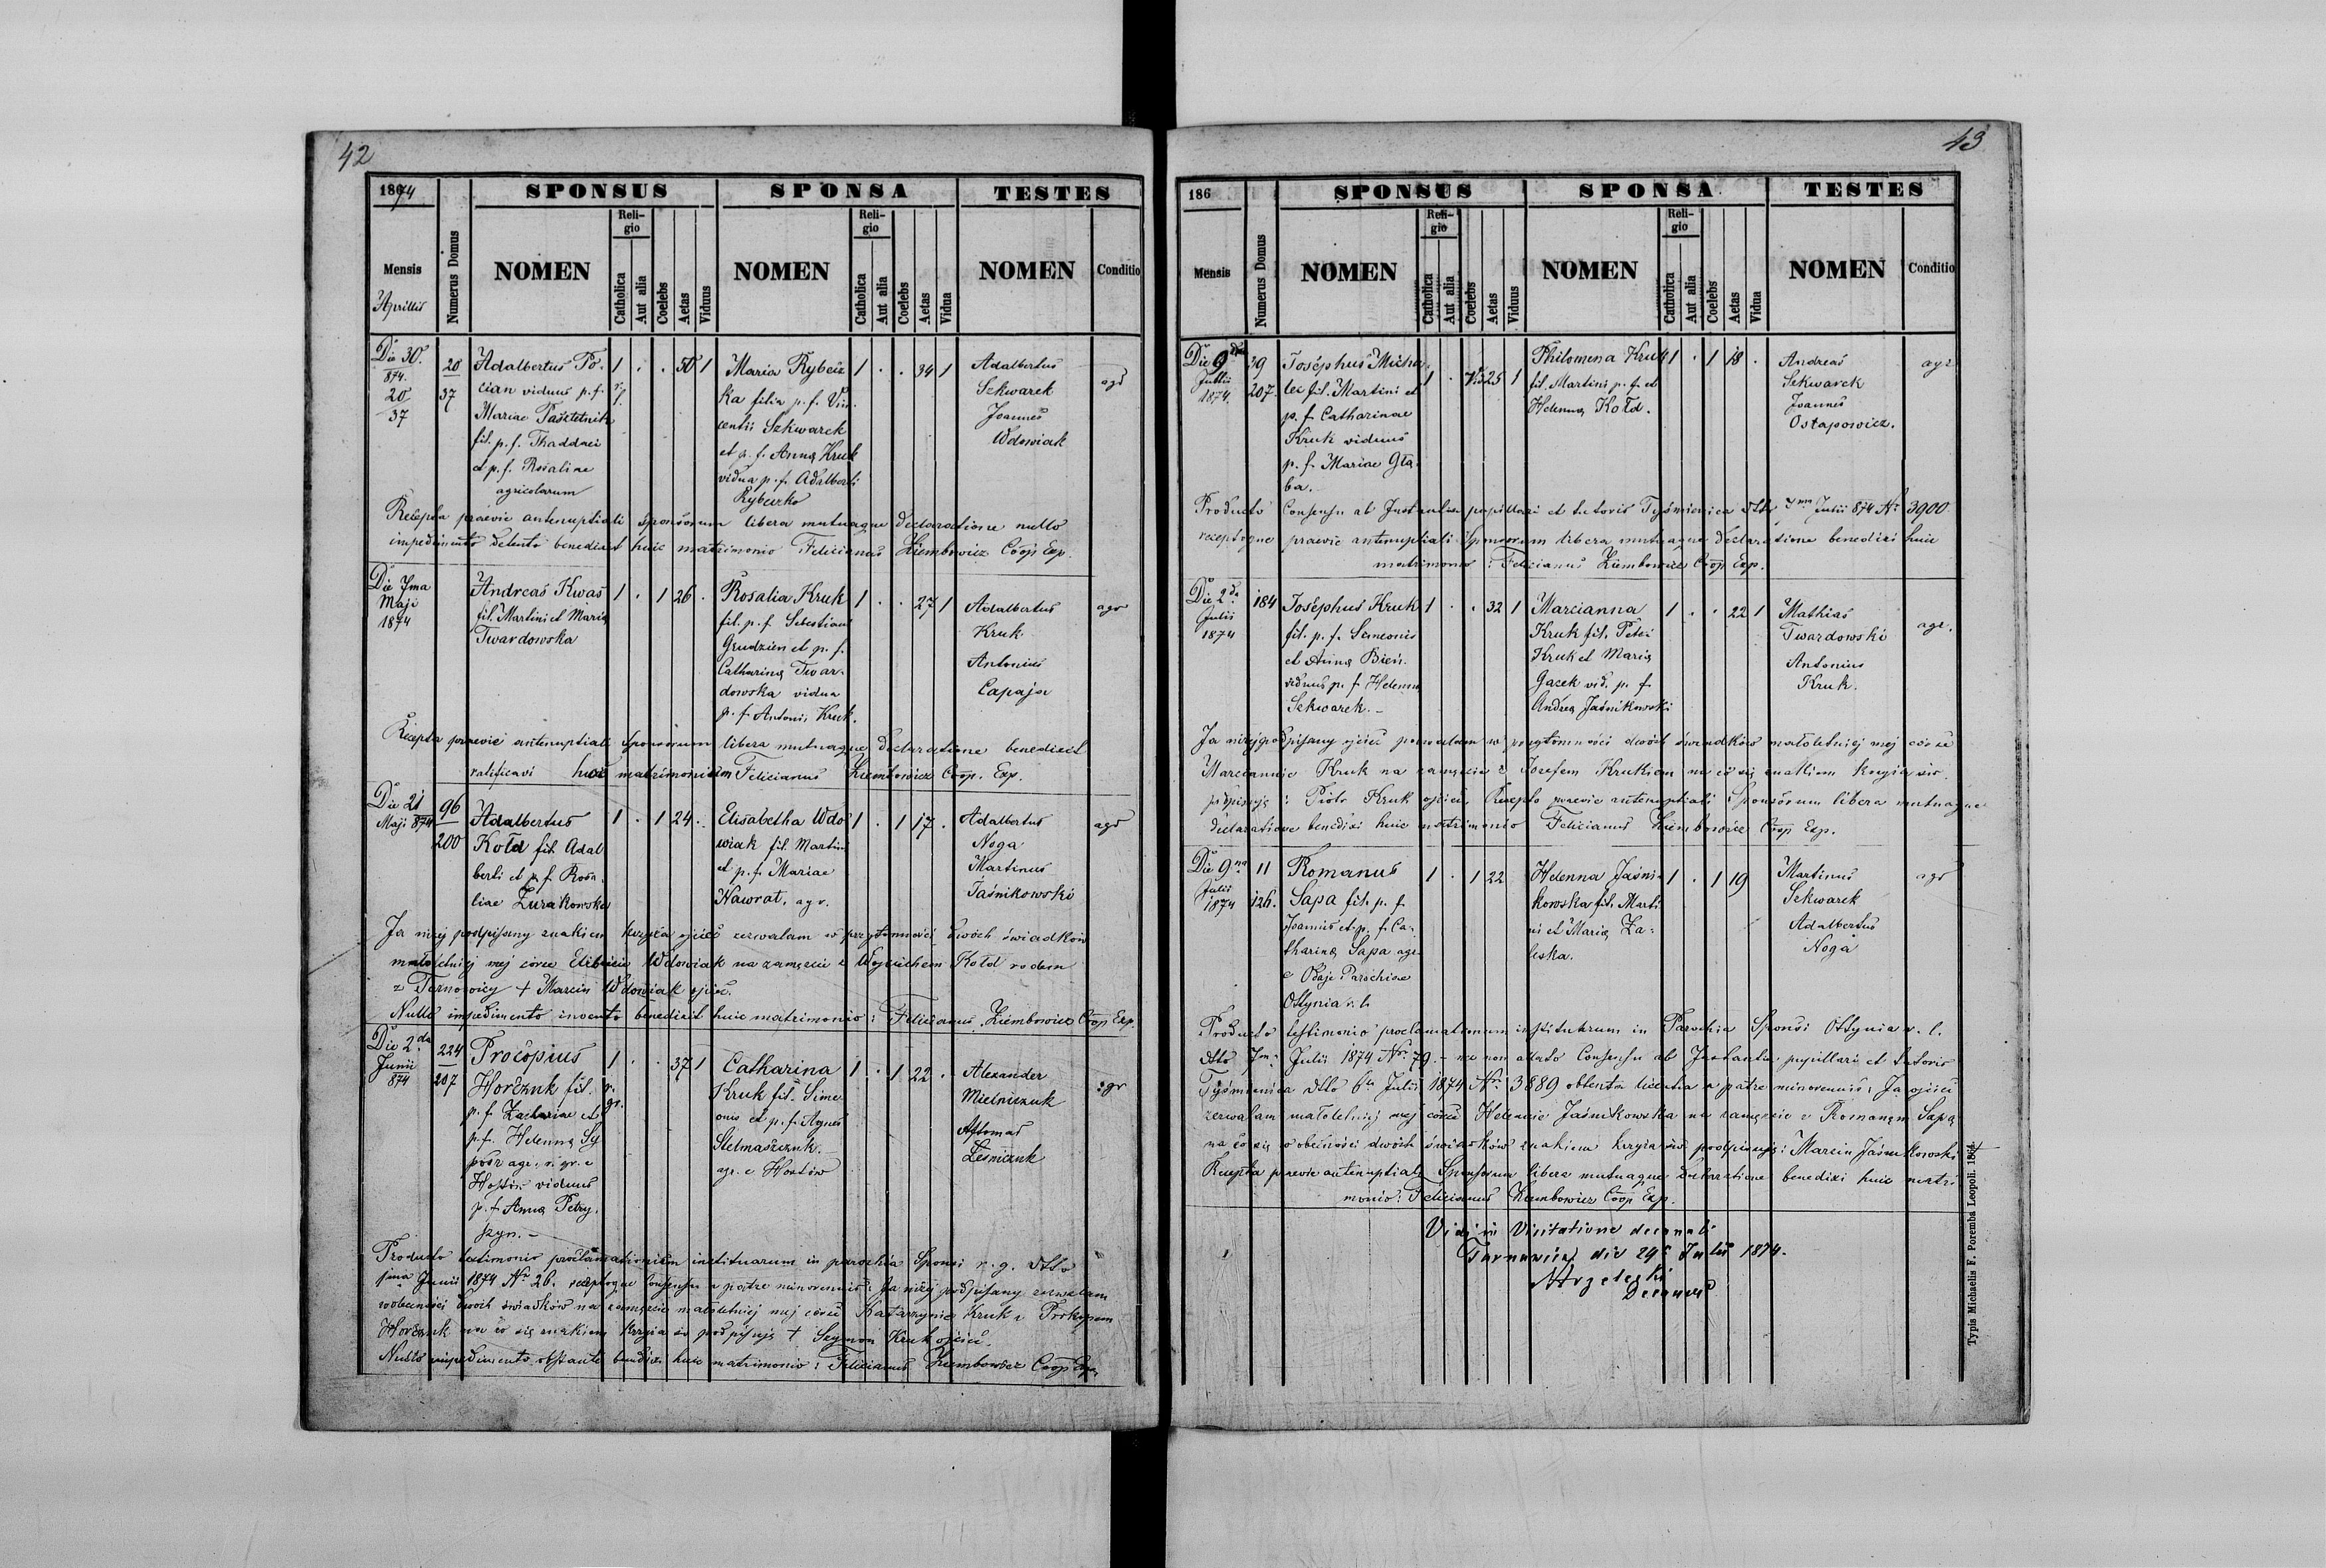 42
1874
SPONSUS
SPONSA
TESTES
Mensis
Aprillis
Numerus Domus
NOMEN
Religio
Catholica
Aut alia
Coelebs
Aetas
Viduus
NOMEN
Religio
Catholica
Aut alia
Coelebs
Aetas
Vidua
NOMEN
Conditio
Die 30.
874.
20
37
20
37
Adalbertus Po-
cian viduus p. f.
Mariae Pasztetnik
fil. p. f. Thaddaei
et p. f. Rosaliae
agricolarum
1 . . 50 1
Maria Rybciz
ka filia p. f. Vin-
centii Szkwarek
et p. f. Anna Kruk
vidua p. f. Adalberti
Rybczko
1 . . 34 1
Adalbertus
Szkwarek
Joannes
Wdowiak
agr
Recepta praevie antenuptiali sponsorum libera mutuaque declaratione nullo
impedimento detento benedixit huic matrimonio Felicianus Ziembowicz Coop Exp.
Die 7ma
Maji
1874
Andreas Kwas
fil. Martini et Maria
Twardowska
1 . 1 26 .
Rosalia Kruk
fil. p. f. Sebestiani
Grudzien et p. f.
Catharina Twar-
dowska vidua
p. f. Antoni Kruk.
1 . . 27 1
Adalbertus
Kruk
Antonius
Capaja
agr
Recepta praevie antenuptiali Sponsorum libera mutuaque declaratione benedixit
ratificavi huic matrimonium Felicianus Ziembowicz Coop. Exp.
Die 21
Maji 874
96
200
Adalbertus
Kołd fil. Adal
berti et p. f. Rosa
liae Zurakowska
1 . 1 24 .
Elisabetha Wdo
wiak fil. Martini
et p. f. Mariae
Nawrat, agr.
1 . 1 17 .
Adalbertus
Noga
Martinus
Jaśnikowski
agr
Ja niżej podpisany znakiem krzyża ojciec zezwalam w przytomności dwóch świadków
małoletniej mej córce Elżbiecie Wdowiak na zamęście z Wojciechem Kołd rodem
z Tarnowicy + Marcin Wdowiak ojciec.
Nullo impedimento invento benedixit huic matrimonio: Felicianus Ziembowicz Coop Exp.
Die 2da
Junii
874
224
207
Procopius
Horczuk fil.
p. f. Zachariae et
p. f. Helenna Sy
poor agr. r. gr. e
Hostów viduus
p. f. Anna Petry.
szyn. -
1 . . 37 1
r.
gr.
Catharina
Kruk fil. Sime
onis et p. f. Agnes
Stelmaszczuk.
agr. e Hostów
1 . 1 22 .
Alexander
Mielniczuk
Aftomas
Leśniczuk
agr
Producto testimonio proclamationum instituarum in parochia Sponsi r. g. dtto
1ma Junii 1874 Nr 26. receptoque Consensu a patre minorennis: Ja niżej podpisany zezwalam
w obecności dwóch świadków na zamęście małoletniej mej córce Katarzynie Kruk z Prokopem
Horczuk na co się znakiem krzyża śó podpisuję + Szymon Kruk ojciec.
Nullo impedimento obstante benedixi huic matrimonio: Felicianus Ziembowicz Coop Exp.
43
186
SPONSUS
SPONSA.
TESTES
Mensis
Numerus Domus
NOMEN
Religio
Catholica
Aut alia
Coelebs
Aetas
Viduus
NOMEN
Religio
Catholica
Aut alia
Coelebs
Aetas
Vidua
NOMEN
Conditio
Die 9
Julii
1874.
39
207.
Josephus Micha-
lec fil. Martini et
p. f. Catharinae
Kruk viduus
p. f. Mariae Gła-
ba.
1 . 25 1
Philomena Kruk
fil. Martini p. f. et
Helenna Kołd.
1 . 1 18 .
Andreas
Szkwarek
Joannes
Ostapowicz.
agr
Producto Consensu ab Instantia pupillari et tutoris Tyśmienica dtto 7ma Julii 874 Nr 3900
receptoque praevie antenuptiali Sponsorum libera mutuaque declaratione benedixi huic
matrimonio: Felicianus Ziembowicz Coop Exp.
Die 2da
Julii
1874
184
Josephus Kruk
fil. p. f. Semeonis
et Anna Bień.
viduus p. f. Helenna
Szkwarek. -
1 . . 32 1
Marcianna
Kruk fil. Petri
Kruk et Maria
Gacek vid. p. f.
Andrea Jaśnikowski
1 . . 22 1
Mathias
Twardowski
Antonius
Kruk.
agr.
Ja niżej podpisany ojciec pozwalam w przytomności dwóch świadków małoletniej mej córce
Marciannie Kruk na zamęście z Józefem Krukiem na co się znakiem krzyża św.
podpisuję: Piotr Kruk ojciec. Recepto praevie antenuptiali Sponsorum libera mutuaque
declaratione benedixi huic matrimonio Felicianus Ziembowicz Coop Exp.
Die 9na
Julii
1874
11
126.
Romanus
Sapa fil. p. f.
Joannis et p. f. Ca-
tharina Sapa agr.
e Odaje Parochiae
Ottynia r. l.
1 . 1 22
Helenna Jaśni-
kowska fil. Marti
ni et Maria Za-
leska.
1 . 1 19
Martinus
Szkwarek
Adalbertus
Noga
agr
Producto testimonio proclamationum institutarum in Parochia Sponsi Ottynia r. l.
dtto 7ma Julii 1874 Nr. 79. - nec non allato Consensu ab Instantia pupillari et tutoris
Tyśmienica dtto 6ta Julii 1874 Nr. 3889 obtenta licentia a patre minorennis: Ja ojciec
zezwalam małoletniej mej córce Helennie Jaśnikowska na zamęście z Romanem Sapą
na co się w obecności dwóch świadków znakiem krzyża św podpisuję: Marcin Jaśnikowski +
Recepta praevie antenuptiali Sponsorum libera mutuaque declaratione benedixi huic matri
monio: Felicianus Ziembowicz Coop Exp.
Vidi in Visitatione decanali
Tarnowica die 29 Julii 1874.
Decanus
Typis Michaelis F. Poremba Leopoli. 1864.